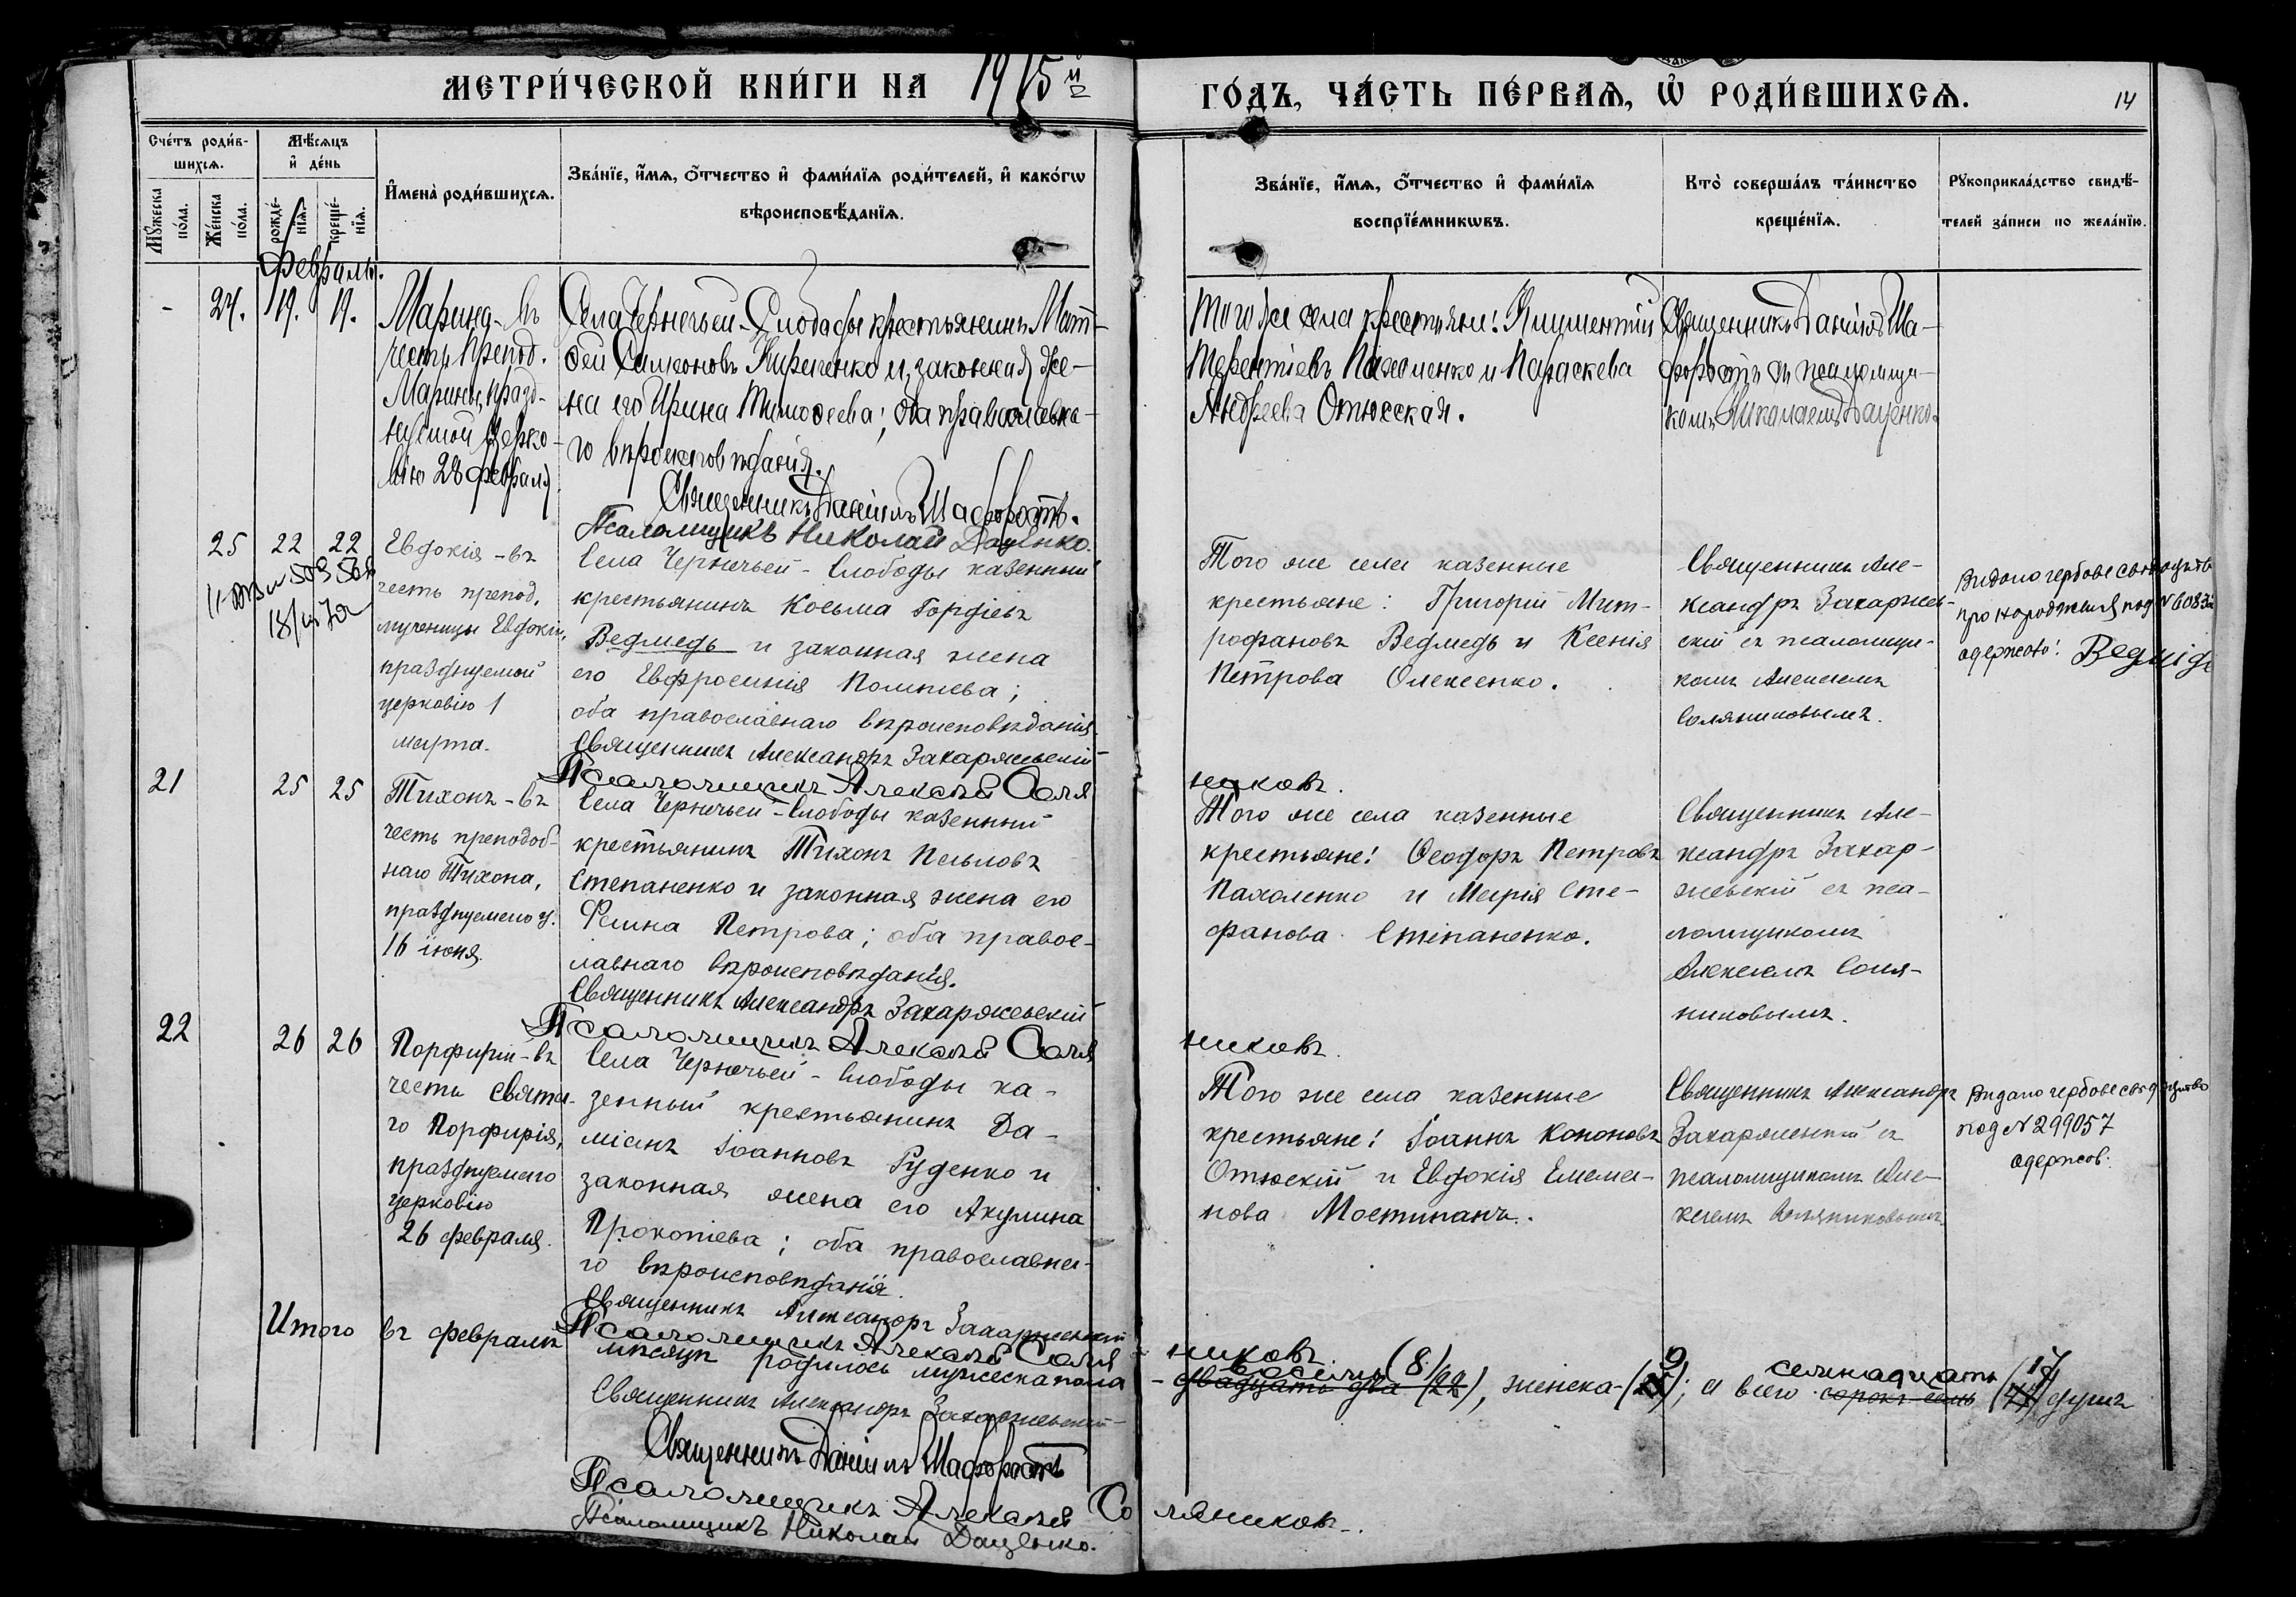 МЕТРИ́ЧЕСКОЙ КНИ́ГИ НА 1915 й
ГО́ДЪ, ЧА́СТЬ ПЕ́РВАѦ, Ѡ҆ РОДИ́ВШИХСѦ.
14
Сче́тъ роди́в-
шихсѧ.
Мѣ́сѧцъ
и҆ де́нь
Мꙋ́жеска
по́ла.
Же́нска
по́ла.
рожде́-
нїѧ.
креще́-
нїѧ.
И҆мена̀ роди́вшихсѧ.
Зва́нїе, и҆́мѧ, ѻ҆́тчество и҆ фами́лїѧ роди́телей, и҆ како́гѡ
вѣроисповѣ́данїѧ.
Зва́нїе, и҆́мѧ, ѻ҆́тчество и҆ фами́лїѧ
воспрїе́мникѡвъ.
Кто̀ соверша́лъ та́инство
креще́нїѧ.
Рꙋкоприкла́дство свидѣ́-
телей за́писи по жела́нїю.
Февраль.
- 24. 19. 19.
Марина - въ
честь препод.
Марины, празд-
нуемой Церко-
вію 28 февраля
Села Чернечьей-Слободы крестьянинъ Мат-
ѳей Симеоновъ Кириченко и законная же-
на его Ирина Тимоѳеева; оба православна-
го вѣроисповѣданія.
Священникъ Даніилъ Шафоростъ.
Псаломщикъ Николай Даценко.
Того же села крестьяне: Климентій
Терентіевъ Пахоменко и Параскева
Андреева Отюсская.
Священникъ Даніилъ Ша-
форостъ съ псаломщи-
комъ Николаемъ Даценко.
25 22 22
18/
Евдокія - въ
честь препод.
мученицы Евдокіи,
празднуемой
церковію 1
марта.
Села Чернечьей - Слободы казенный
крестьянинъ Косьма Гордіевъ
Ведмедь и законная жена
его Евфросинія Помпіева;
оба православнаго вѣроисповѣданія.
Священникъ Александръ Захаржевскій
Псаломщикъ Алексѣй Соля
никовъ.
Того же села казенные
крестьяне: Григорій Мит-
рофановъ Ведмедь и Ксенія
Петрова Олексенко.
Священникъ Але-
ксандръ Захаржев-
скій съ псаломщи-
комъ Алексѣемъ
Соляниковымъ.
Видано гербове свидоцтво
про народження под N 6083
одержав: Ведмідь
21 25 25
Тихонъ - въ
честь преподоб-
наго Тихона,
празднуемаго ц.
16 іюня.
Села Чернечьей - Слободы казенный
крестьянинъ Тихонъ
Степаненко и законная жена его
Фекла Петрова; оба правос-
лавнаго вѣроисповѣданія.
Священникъ Александръ Захаржевскій
Псаломщикъ Алексѣй Соля
никовъ.
Того же села казенные
крестьяне: Ѳеодоръ Петровъ
Пахоленко и Марія Сте-
фанова Степаненко.
Священникъ Але-
ксандръ Захар-
жевскій съ пса-
ломщикомъ
Алексѣемъ Соля-
никовымъ.
22 26 26
Порфирій - въ
честь свята-
го Порфирія,
празднуемаго
церковію
26 февраля.
Села Чернечьей - Слободы ка-
зенный крестьянинъ Да-
міанъ Іоанновъ Руденко и
законная жена его Акулина
Прокопіева; оба православна-
го вѣроисповѣданія.
Священникъ Александръ Захаржевскій
Псаломщикъ Алексѣй Соля
никовъ.
Того же села казенные
крестьяне: Іоаннъ Кононовъ
Отюскій и Евдокія Емелья-
нова Мостипанъ.
Священникъ Александръ
Захаржевскій съ
псаломщикомъ Але-
ксѣемъ Соляниковымъ
Видано гербове свидоцтво
под N 299057
одержав.
Итого въ февралѣ мѣсяцѣ родилось мужеска пола
восемь (8)
- двадцать два (22), женска - (9); а всего сорокъ семь (47) душъ
семнадцать (17)
Священникъ Александръ Захаржевскій
Священникъ Даніилъ Шафоростъ
Псаломщикъ Алексѣй Соляниковъ.
Псаломщикъ Николай Даценко.